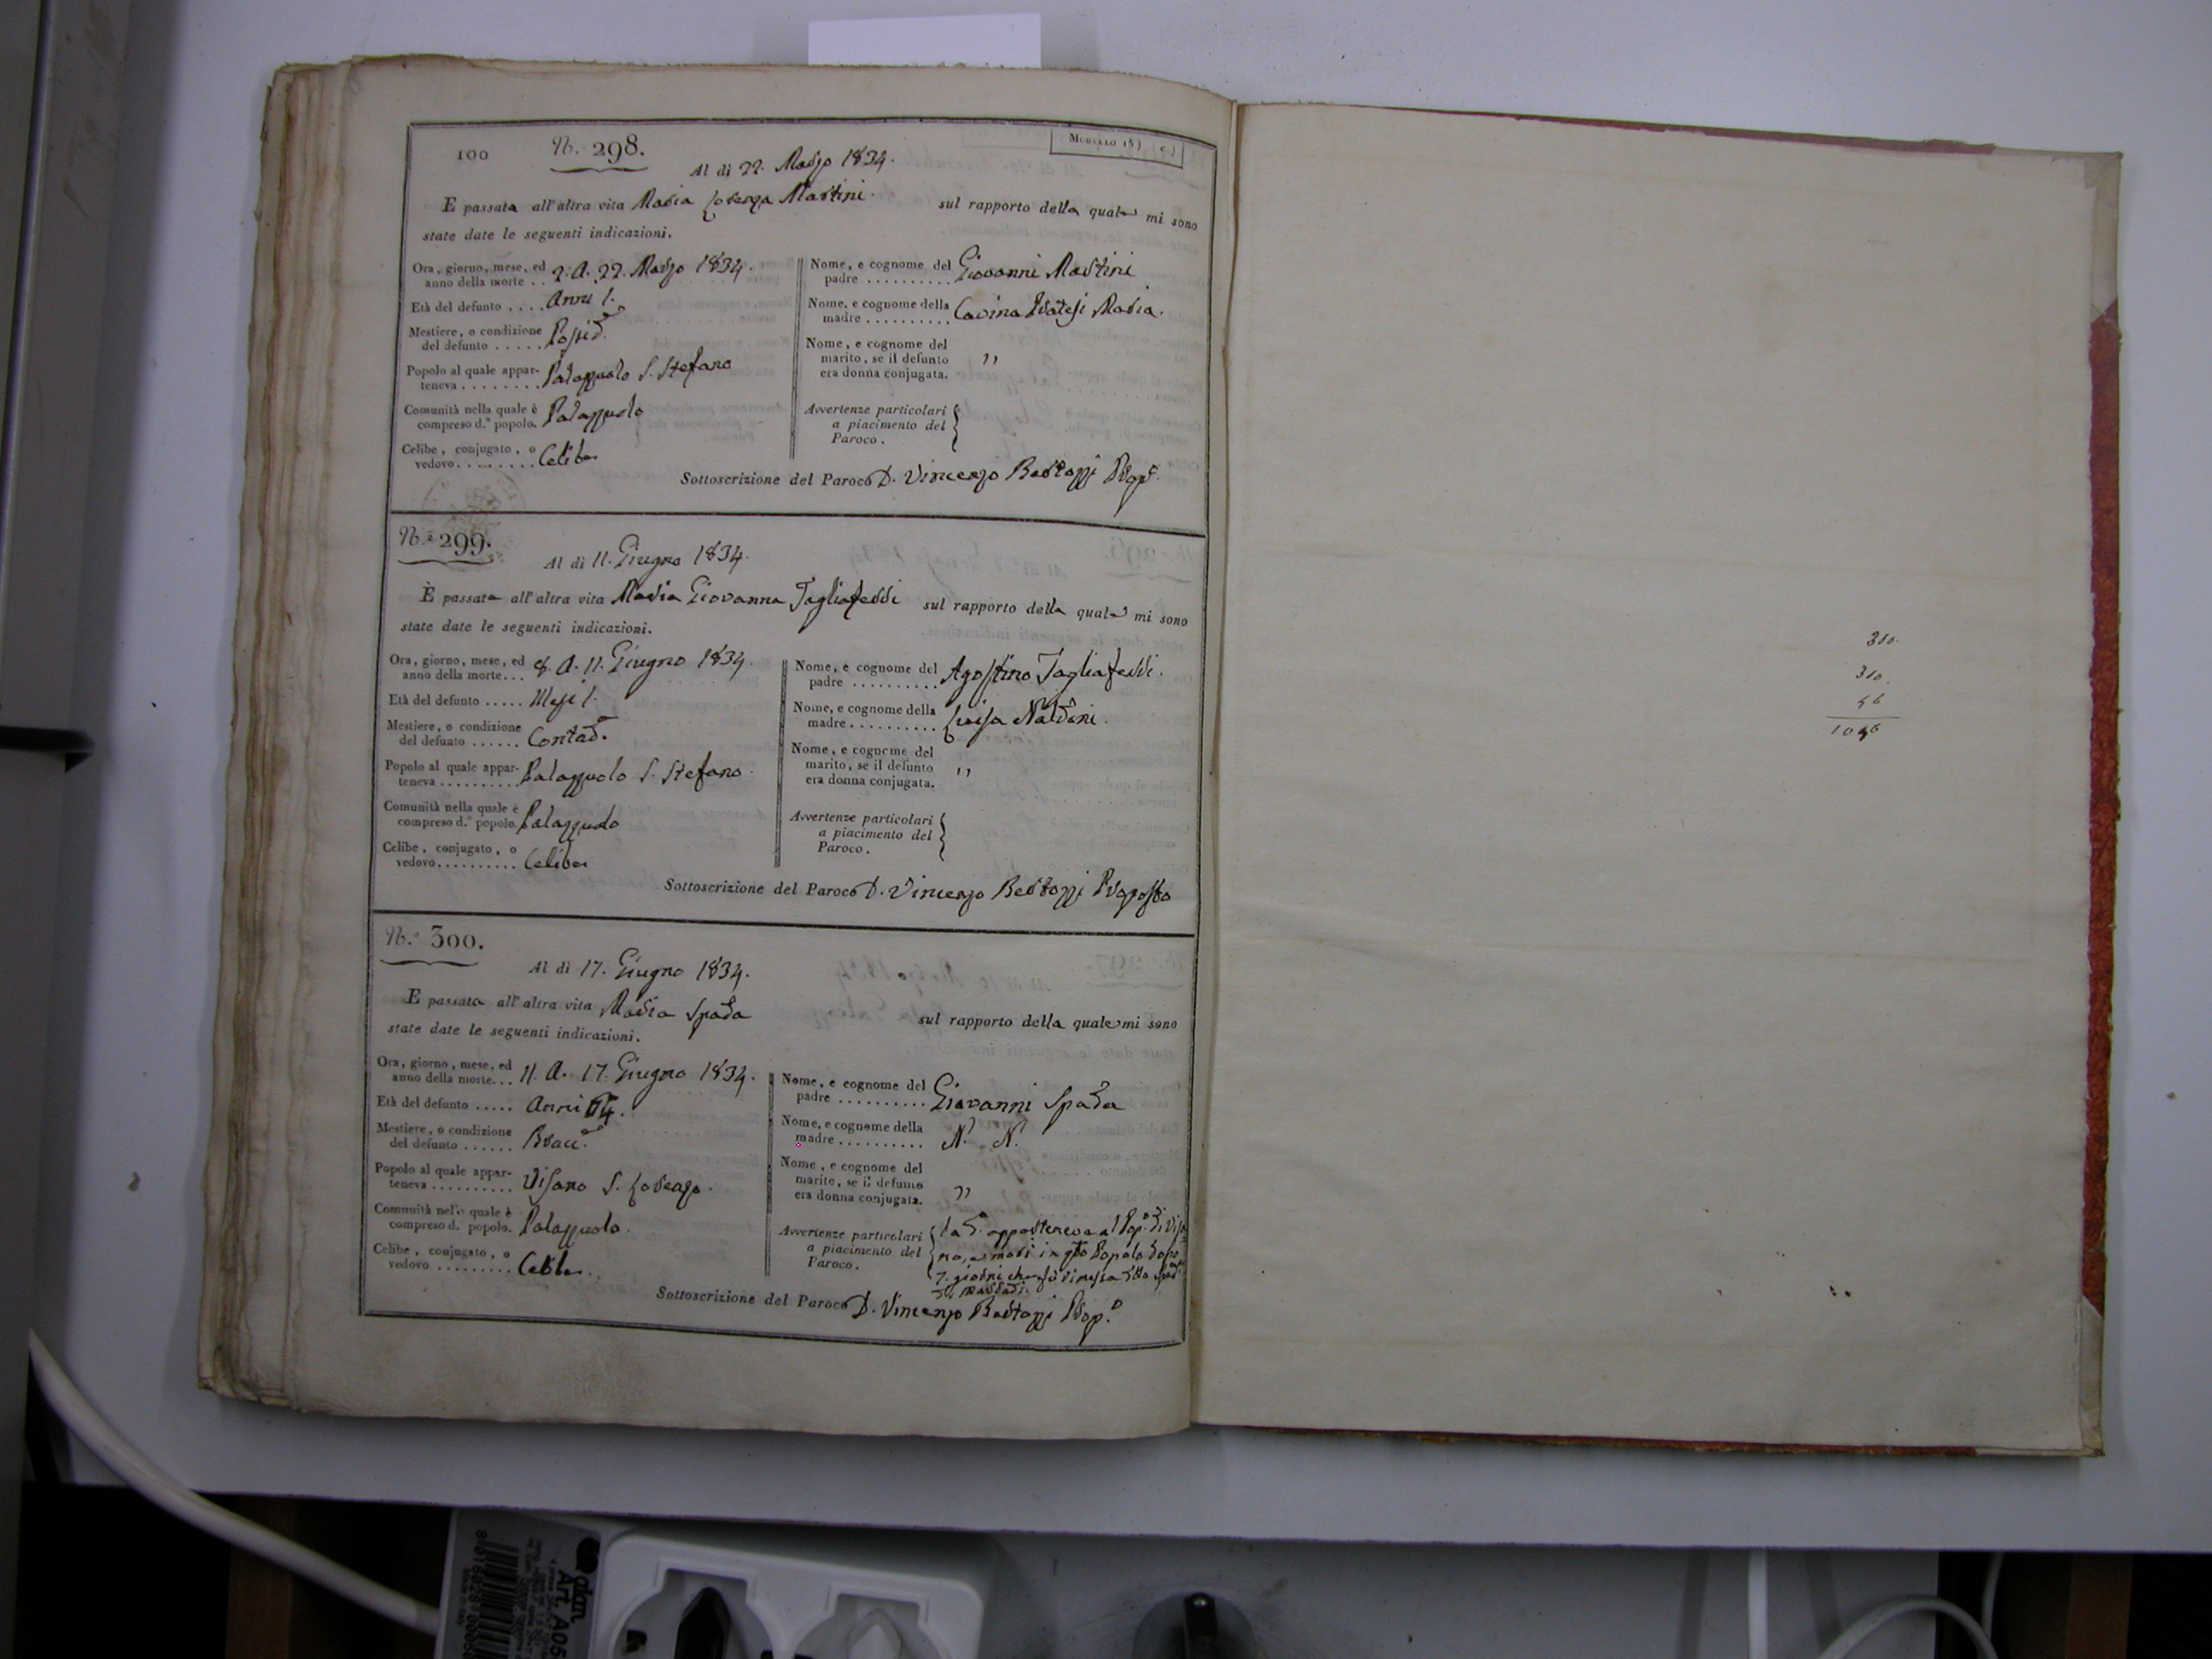 100 N.° 298.
Al dì 22. Marzo 1834.
È passata all'altra vita Maria Lorenza Martini. sul rapporto della quale mi sono
state date le seguenti indicazioni.
Ora, giorno, mese, ed
anno della morte .. 2. A. 22. Marzo 1834.
Età del defunto .... Anni 1.
Mestiere, o condizione
del defunto ..... Possid.
Popolo al quale appar-
teneva ........ Palazzuolo S. Stefano
Comunità nella quale è
compreso d.° popolo. Palazzuolo
Celibe, conjugato, o
vedovo......... Celibe
Nome, e cognome del
padre .......... Giovanni Martini
Nome, e cognome della
madre .......... Cavina Pratesi Maria.
Nome, e cognome del
marito, se il defunto ,,
era donna conjugata.
Avvertenze particolari
a piacimento del
Paroco.
Sottoscrizione del Paroco D. Vincenzo Bertozzi Prop.
N.° 299.
Al dì 11. Giugno 1834.
È passata all'altra vita Maria Giovanna Tagliaferri sul rapporto della quale mi sono
state date le seguenti indicazioni.
Ora, giorno, mese, ed
anno della morte... 8. A. 11. Giugno 1834.
Età del defunto ..... Mesi 1.
Mestiere, o condizione
del defunto ...... Contad.
Popolo al quale appar-
teneva .......... Palazzuolo S. Stefano.
Comunità nella quale è
compreso d.° popolo. Palazzuolo
Celibe, conjugato, o
vedovo.......... Celibe
Nome, e cognome del
padre .......... Agostino Tagliaferri.
Nome, e cognome della
madre.......... Luisa Naldoni.
Nome, e cognome del
marito, se il defunto ,,
era donna conjugata.
Avvertenze particolari
a piacimento del
Paroco.
Sottoscrizione del Paroco D. Vincenzo Bertozzi Proposto
N.° 300.
Al dì 17. Giugno 1834.
È passata all'altra vita Maria Spada sul rapporto della quale mi sono
state date le seguenti indicazioni.
Ora, giorno, mese, ed
anno della morte... 11. A. 17. Giugno 1834.
Età del defunto ..... Anni
Mestiere, o condizione
del defunto ...... Bracc.
Popolo al quale appar-
teneva .......... Visano S. Lorenzo.
Comunità nella quale è
compreso d. popolo. Palazzuolo.
Celibe, conjugato, o
vedovo ......... Celibe.
Nome, e cognome del
padre .......... Giovanni Spada
Nome, e cognome della
madre .......... N. N.
Nome, e cognome del
marito, se il defunto ,,
era donna conjugata.
Avvertenze particolari
a piacimento del
Paroco.
la apparteneva al Pop.° di Visa
no, e morì in q.to Popolo dopo
7. giorni che
Sottoscrizione del Paroco D. Vincenzo Bertozzi Prop.°
310.
310.